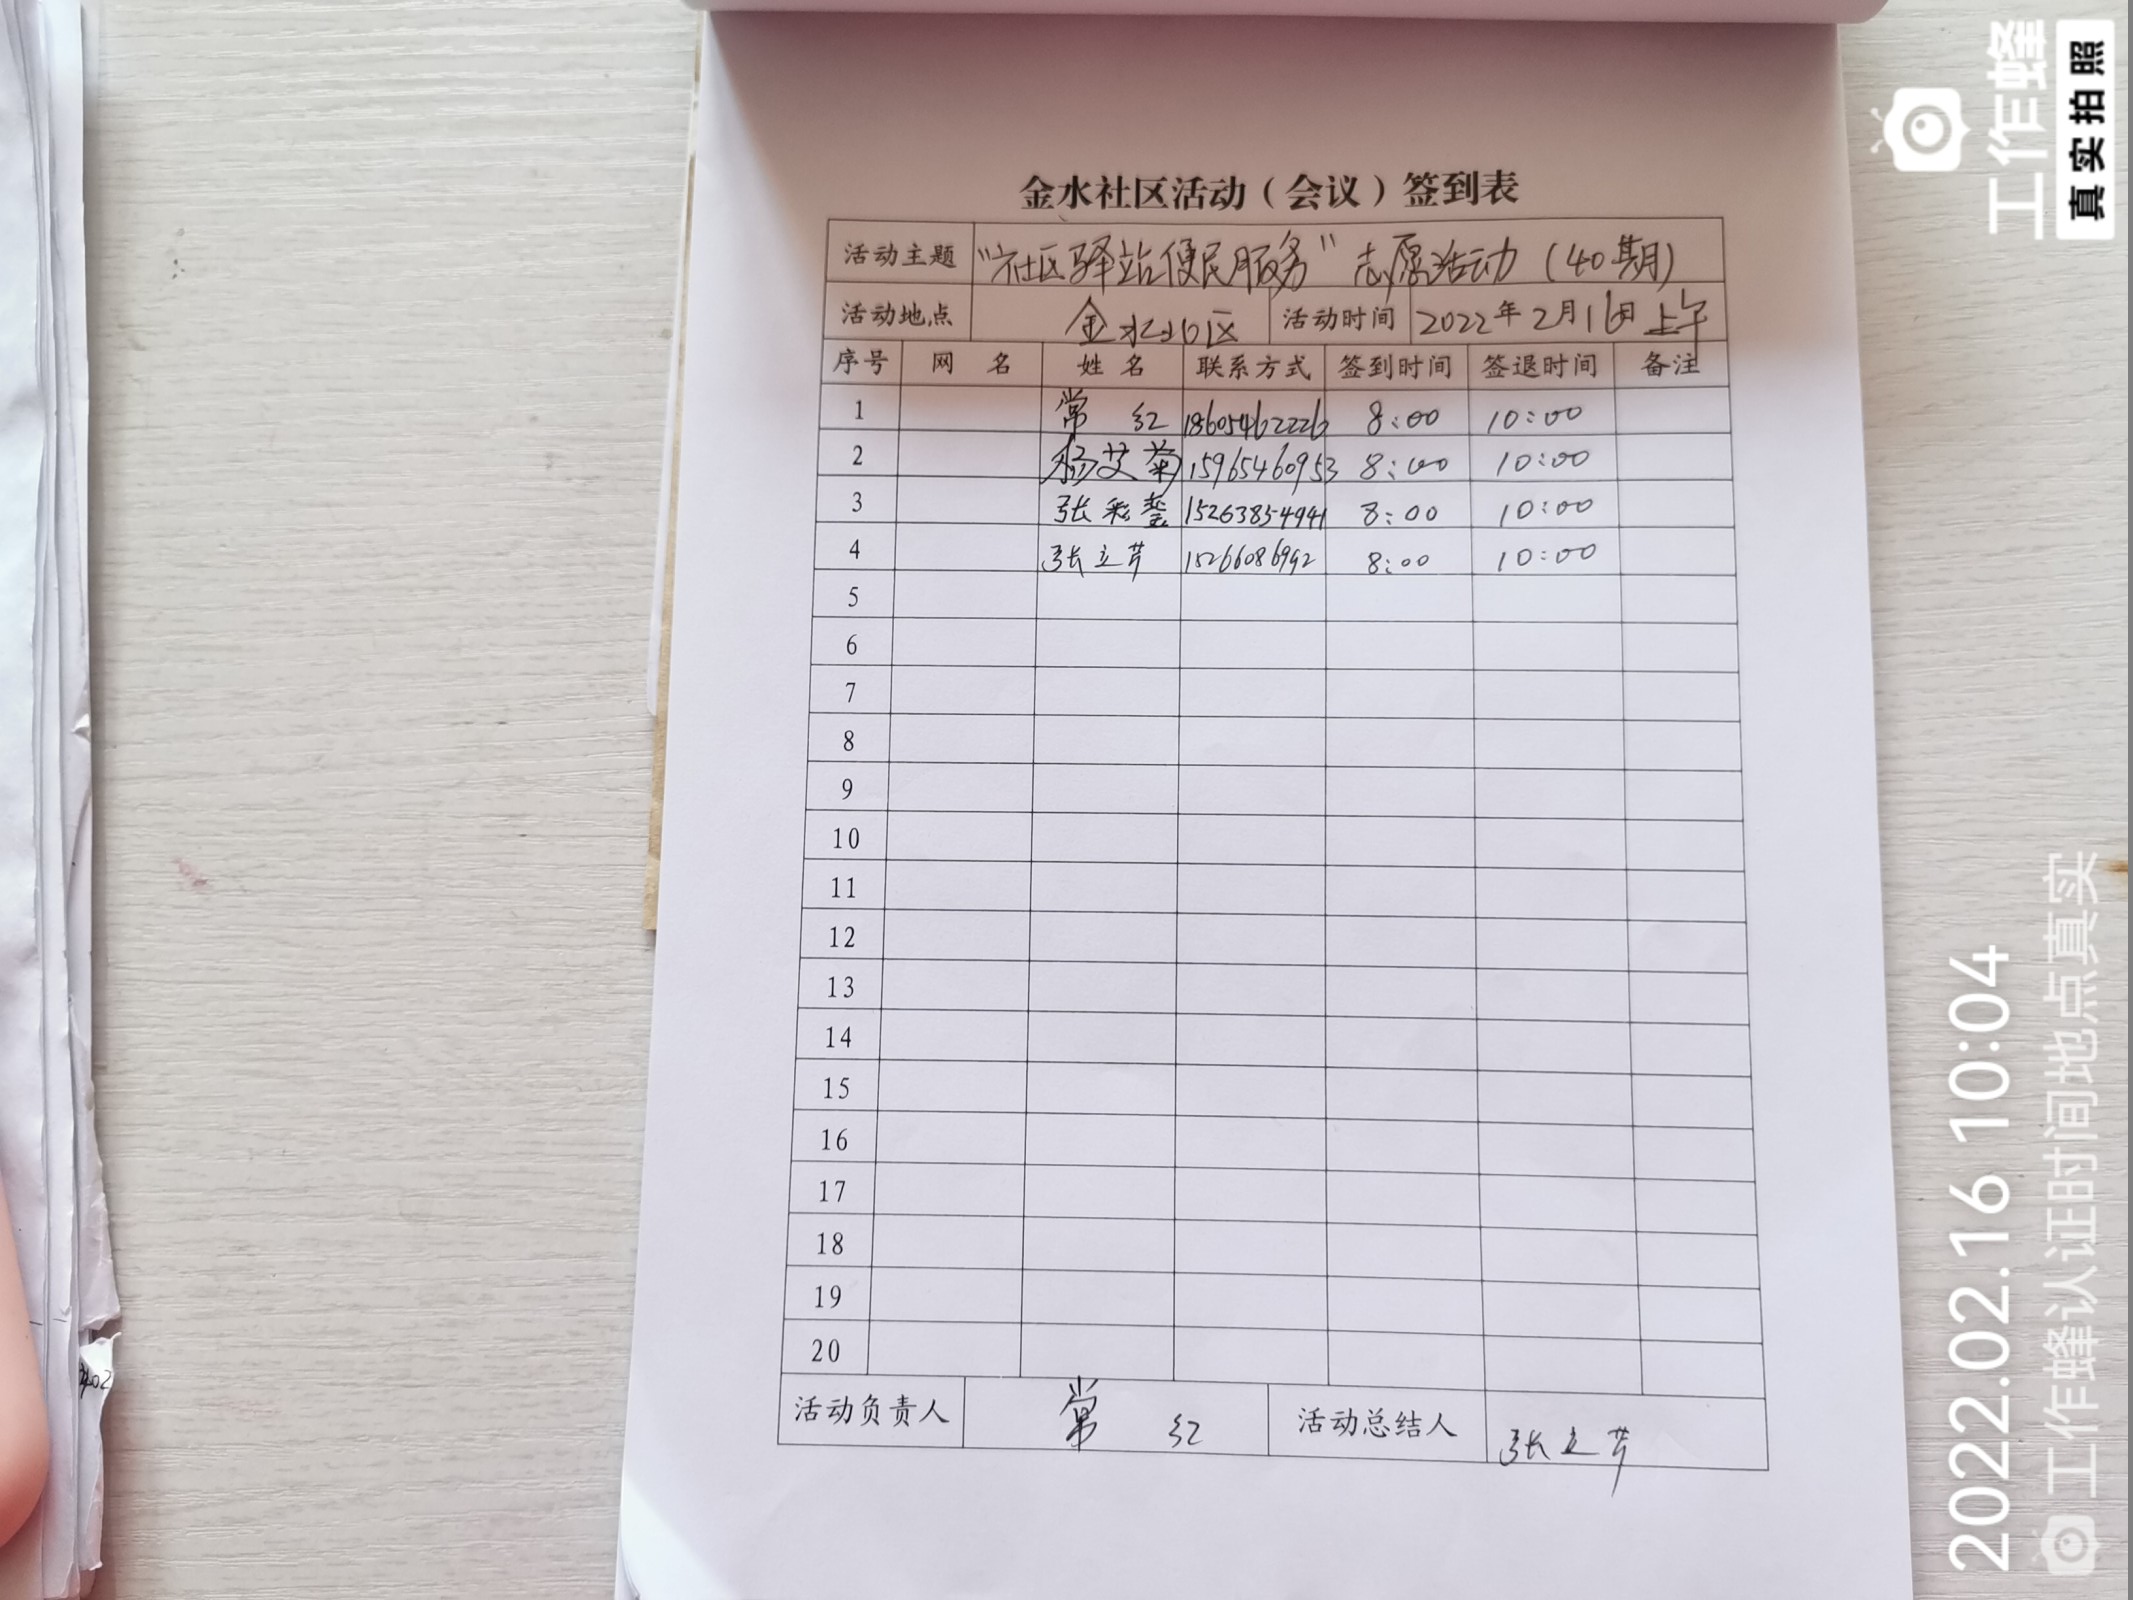 金水社区活动（会议）签到表
活动主题 “社区驿站便民服务”志愿活动（40期）
活动地点 金水社区 活动时间 2022年2月16日上午
序号 网 名 姓 名 联系方式 签到时间 签退时间 备注
1 常 红 18605462226 8:00 10:00
2 杨艾菊 15965460953 8:00 10:00
3 张彩 15263854941 8:00 10:00
4 张立芹 15266086992 8:00 10:00
5
6
7
8
9
10
11
12
13
14
15
16
17
18
19
20
活动负责人 常 红 活动总结人 张立芹
工作蜂
真实拍照
2022.02.16 10:04
工作蜂认证时间地点真实